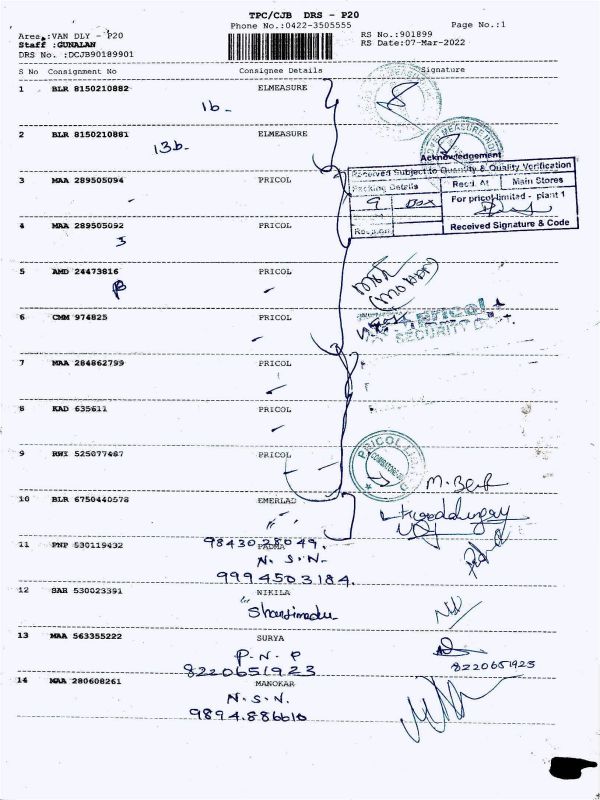 TPC/CJB DRS - P20
Phone No.:0422-3505555
Page No.:1
Area :VAN DLY - P20
RS No.:901899
Staff :GUNALAN
RS Date:07-Mar-2022
DRS No. :DCJB90189901
S No Consignment No Consignee Details Signature
1 BLR 8150210882 ELMEASURE
1b-
2 BLR 8150210881 ELMEASURE
13b-
Acknowledgement
Received Subject to Quantity & Quality Verification
Packing Details Recd. At Main Stores
9 Box For pricol limited - plant 1
Received Signature & Code
3 MAA 289505094 PRICOL
4 MAA 289505092 PRICOL
3
5 AMD 24473816 PRICOL
6 CMM 974825 PRICOL
pricol
SECURITY
7 MAA 284862799 PRICOL
8 KAD 635611 PRICOL
9 RWI 525077487 PRICOL
PRICOL
10 BLR 6750440578 EMERLAD
11 PNP 530119432 PADMA
9843028049.
N. S. N.
9994503184.
12 SAR 530023391 NIKILA
13 MAA 563355222 SURYA
P. N. P
8220651923
8220651923
14 MAA 280608261 MANOKAR
N. S. N.
9894.886610